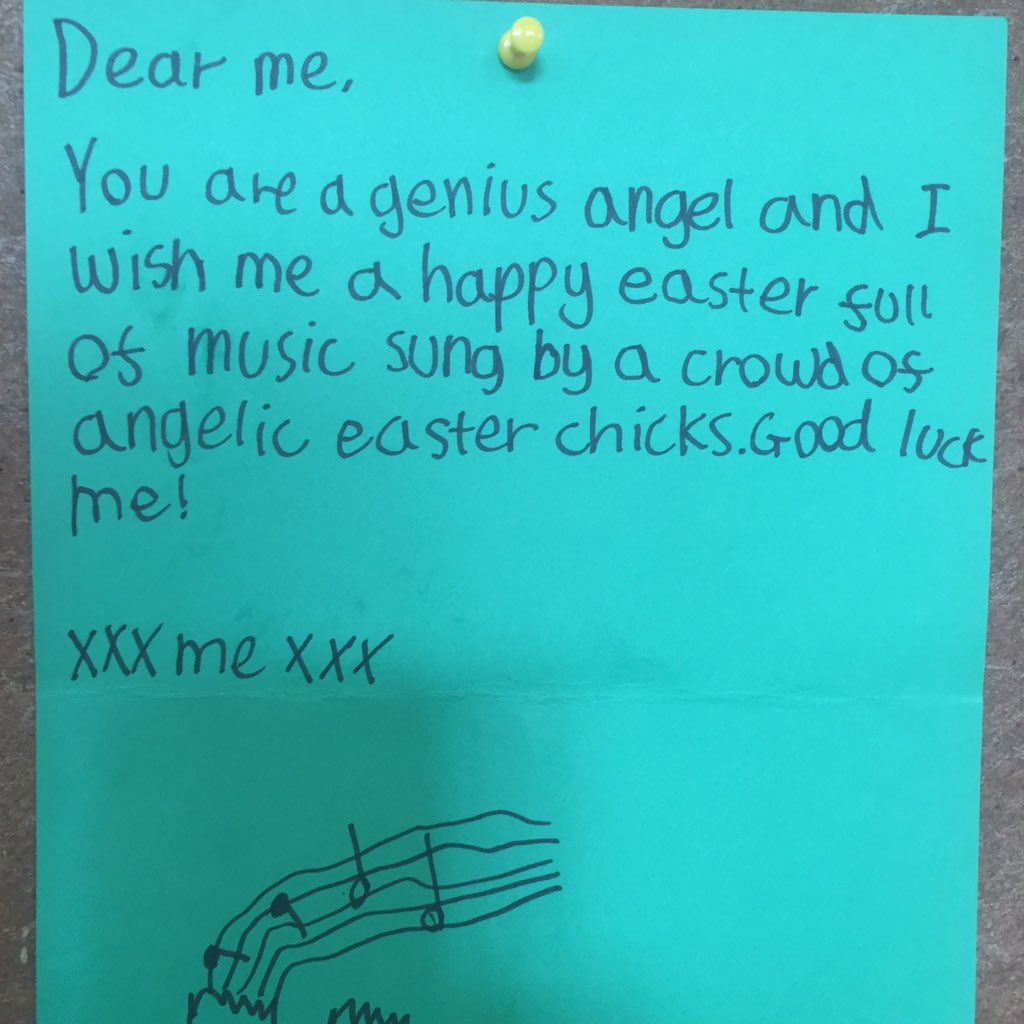 Dear me,
You are a genius angel and I
wish me a happy easter full
of music sung by a crowd of
angelic easter chicks. Good luck
me!
xxx me xxx